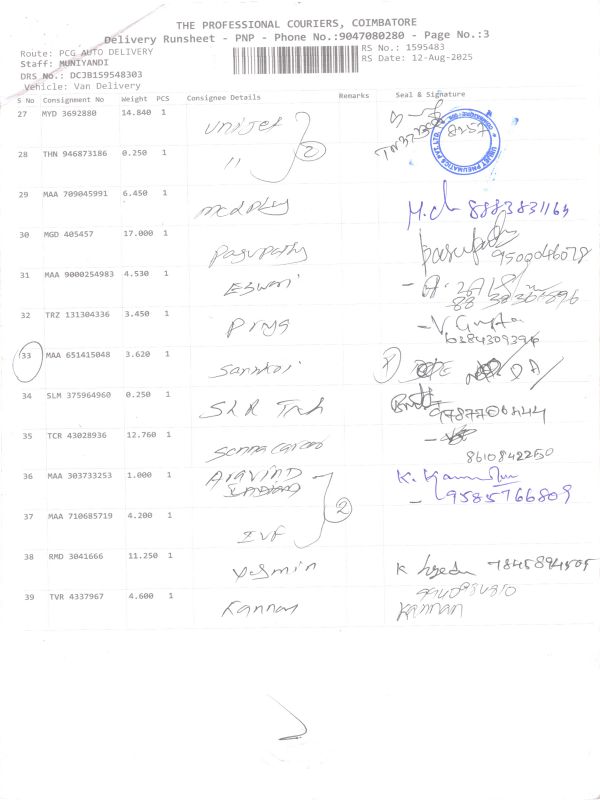 THE PROFESSIONAL COURIERS, COIMBATORE
Delivery Runsheet - PNP - Phone No.:9047080280 - Page No.:3
Route: PCG AUTO DELIVERY
RS No.: 1595483
Staff: MUNIYANDI
RS Date: 12-Aug-2025
DRS No.: DCJB159548303
Vehicle: Van Delivery
S No Consignment No Weight PCS Consignee Details Remarks Seal & Signature
27 MYD 3692880 14.840 1 Unijet
28 THN 946873186 0.250 1 " 2
29 MAA 709045991 6.450 1 medplus M.ch 8883831164
30 MGD 405457 17.000 1 Pasupathy Pasupathy 9500046078
31 MAA 9000254983 4.530 1 Eswari
32 TRZ 131304336 3.450 1 Priya - V. Gupta 6384309396
33 MAA 651415048 3.620 1
34 SLM 375964960 0.250 1 SLR Tech
35 TCR 43028936 12.760 1 8610842250
36 MAA 303733253 1.000 1 Aravind 2 - 9585766809
37 MAA 710685719 4.200 1 IVF
38 RMD 3041666 11.250 1 Yasmin
39 TVR 4337967 4.600 1 Kannan Kannan